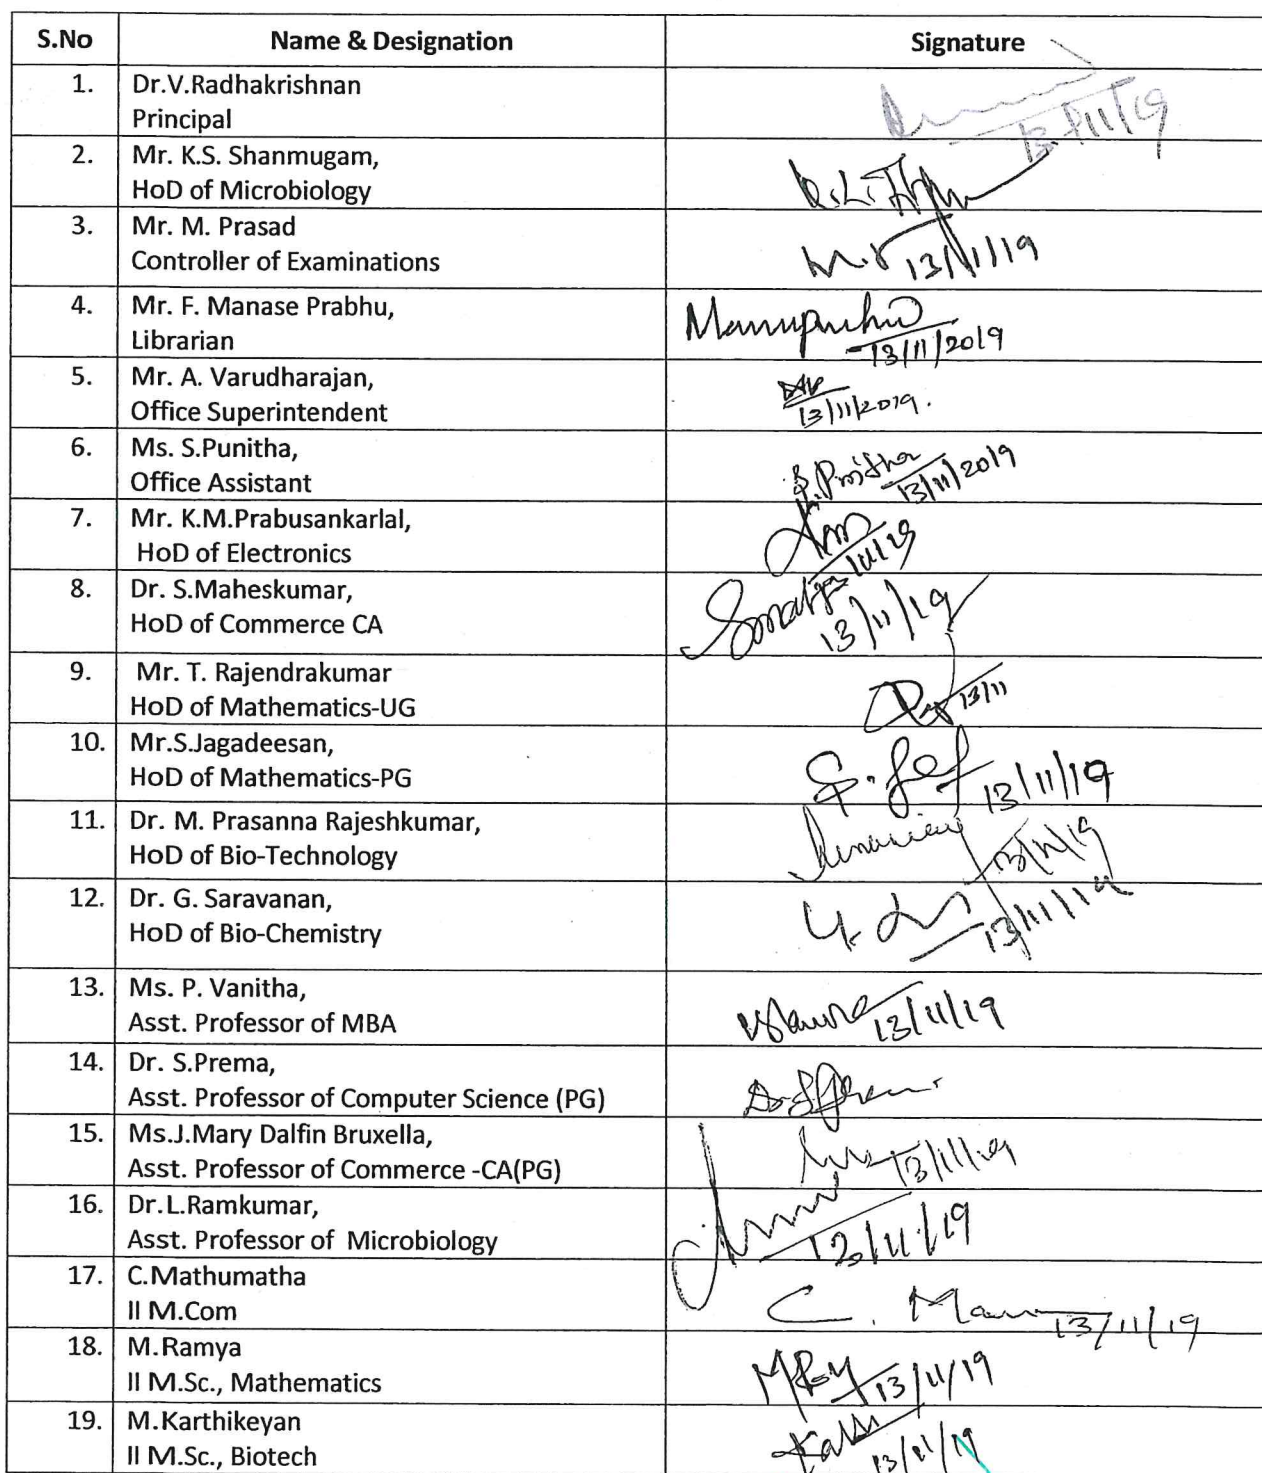 S.No Name & Designation Signature
1. Dr.V.Radhakrishnan
Principal
13/11/19
2. Mr. K.S. Shanmugam,
HoD of Microbiology
3. Mr. M. Prasad
Controller of Examinations
13/11/19
4. Mr. F. Manase Prabhu,
Librarian
13/11/2019
5. Mr. A. Varudharajan,
Office Superintendent
13/11/2019.
6. Ms. S.Punitha,
Office Assistant
13/11/2019
7. Mr. K.M.Prabusankarlal,
HoD of Electronics
8. Dr. S.Maheskumar,
HoD of Commerce CA
13/11/19
9. Mr. T. Rajendrakumar
HoD of Mathematics-UG
13/11
10. Mr.S.Jagadeesan,
HoD of Mathematics-PG
13/11/19
11. Dr. M. Prasanna Rajeshkumar,
HoD of Bio-Technology
13/11/19
12. Dr. G. Saravanan,
HoD of Bio-Chemistry
13/11/19
13. Ms. P. Vanitha,
Asst. Professor of MBA
13/11/19
14. Dr. S.Prema,
Asst. Professor of Computer Science (PG)
15. Ms.J.Mary Dalfin Bruxella,
Asst. Professor of Commerce -CA(PG)
13/11/19
16. Dr.L.Ramkumar,
Asst. Professor of Microbiology
13/11/19
17. C.Mathumatha
II M.Com
13/11/19
18. M.Ramya
II M.Sc., Mathematics
13/11/19
19. M.Karthikeyan
II M.Sc., Biotech
13/11/19